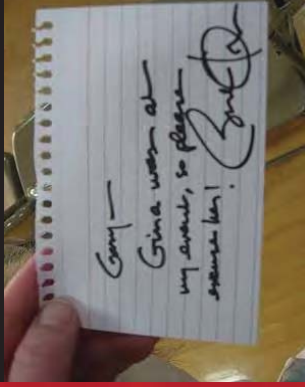 Gina was at
my event, so please
excuse her!